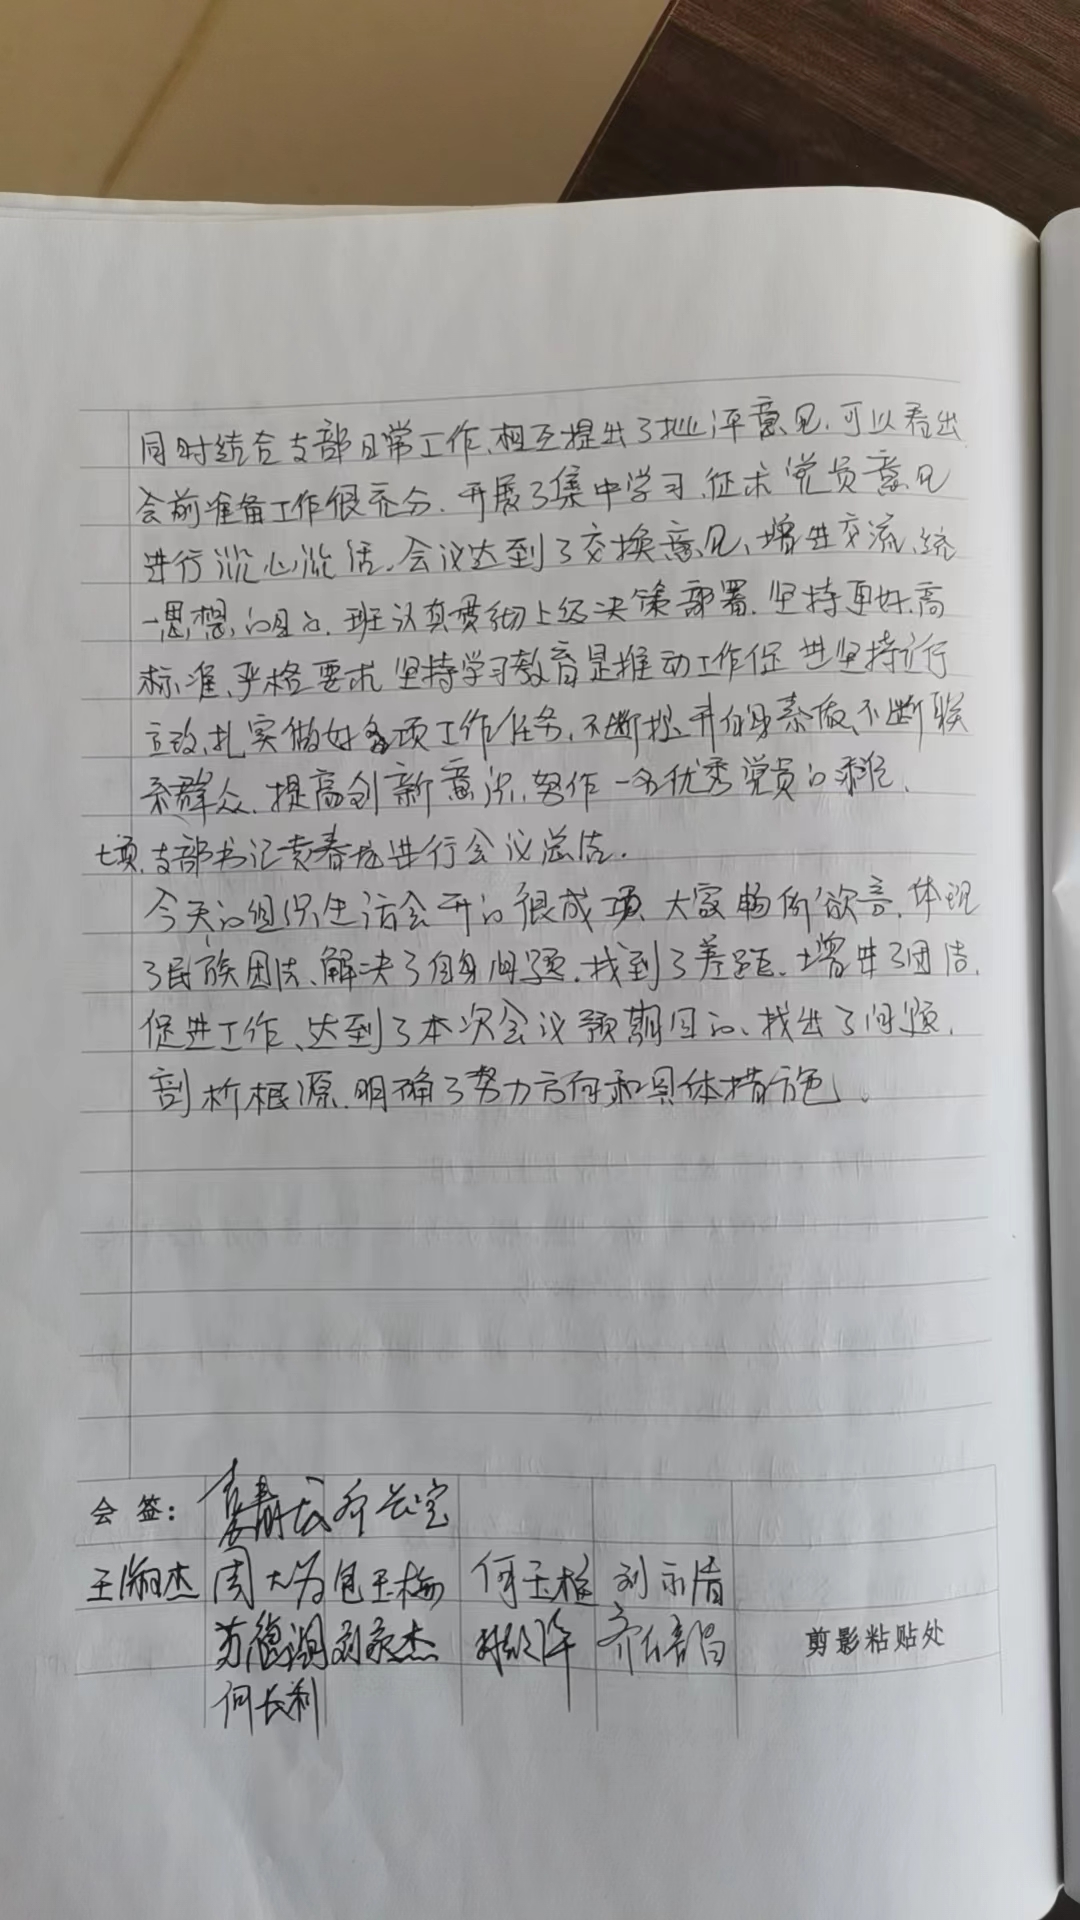 同时结合支部日常工作、相互提出了批评意见.可以看出
会前准备工作很充分.开展了集中学习.征求党员意见
进行谈心谈话.会议达到了交换意见、增进交流、统
一思想的目的.班认真贯彻上级决策部署.坚持更好、高
标准、严格要求 坚持学习教育是推动工作促进坚持立行
立改,扎实做好各项工作任务,不断提升自身素质、不断联
系群众.提高创新意识.努作一名优秀党员的
项.支部书记袁春龙进行会议总结.
今天的组织生活会开的很成项 大家畅所欲言.体现
了民族团结、解决了自身问题.找到了差距.增进了团结.
促进工作、达到了本次会议预期目的、找出了问题.
剖析根源.明确了努力方向和具体措施。
会 签:
王淑杰 周大为 包玉梅 何玉 刘永清
苏德湖 刘 杰
何长利
剪影粘贴处